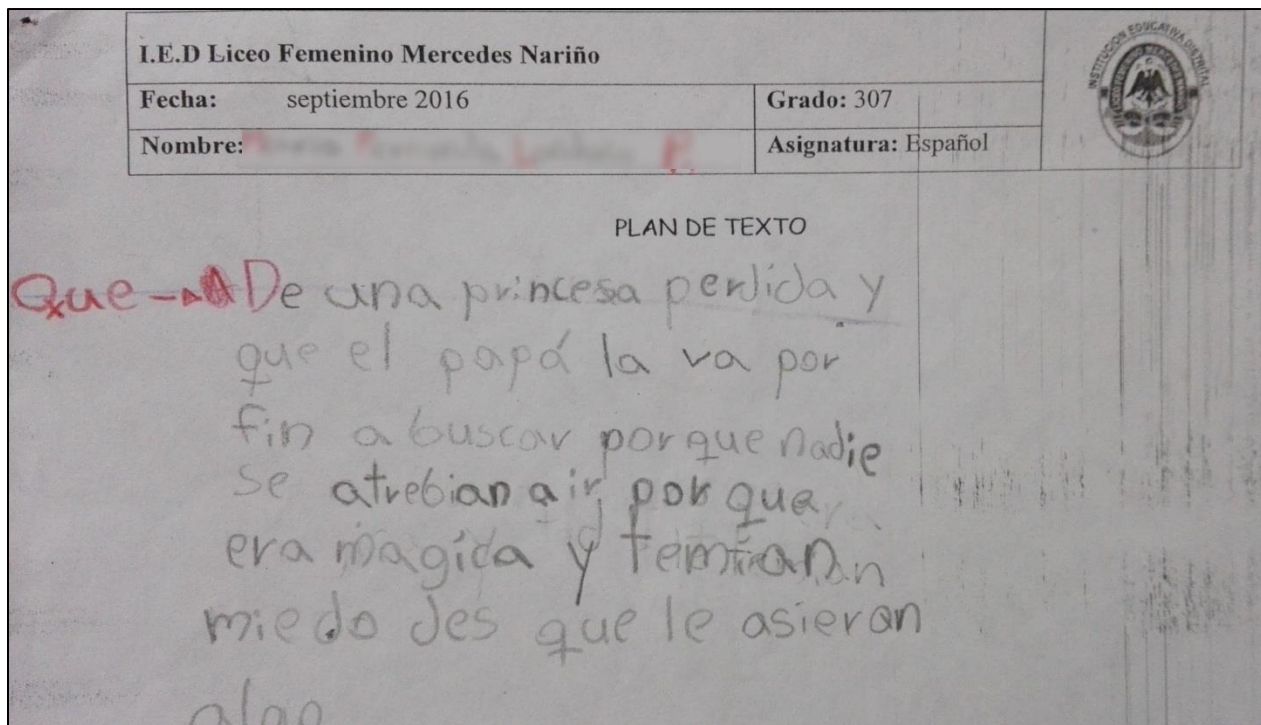 I.E.D Liceo Femenino Mercedes Nariño
Fecha: septiembre 2016 Grado: 307
Nombre: Asignatura: Español
PLAN DE TEXTO
Que De una princesa perdida y
que el papá la va por
fin a buscar porque nadie
se atrebian a ir por que
era magica y temian
miedo des que le asieran
algo